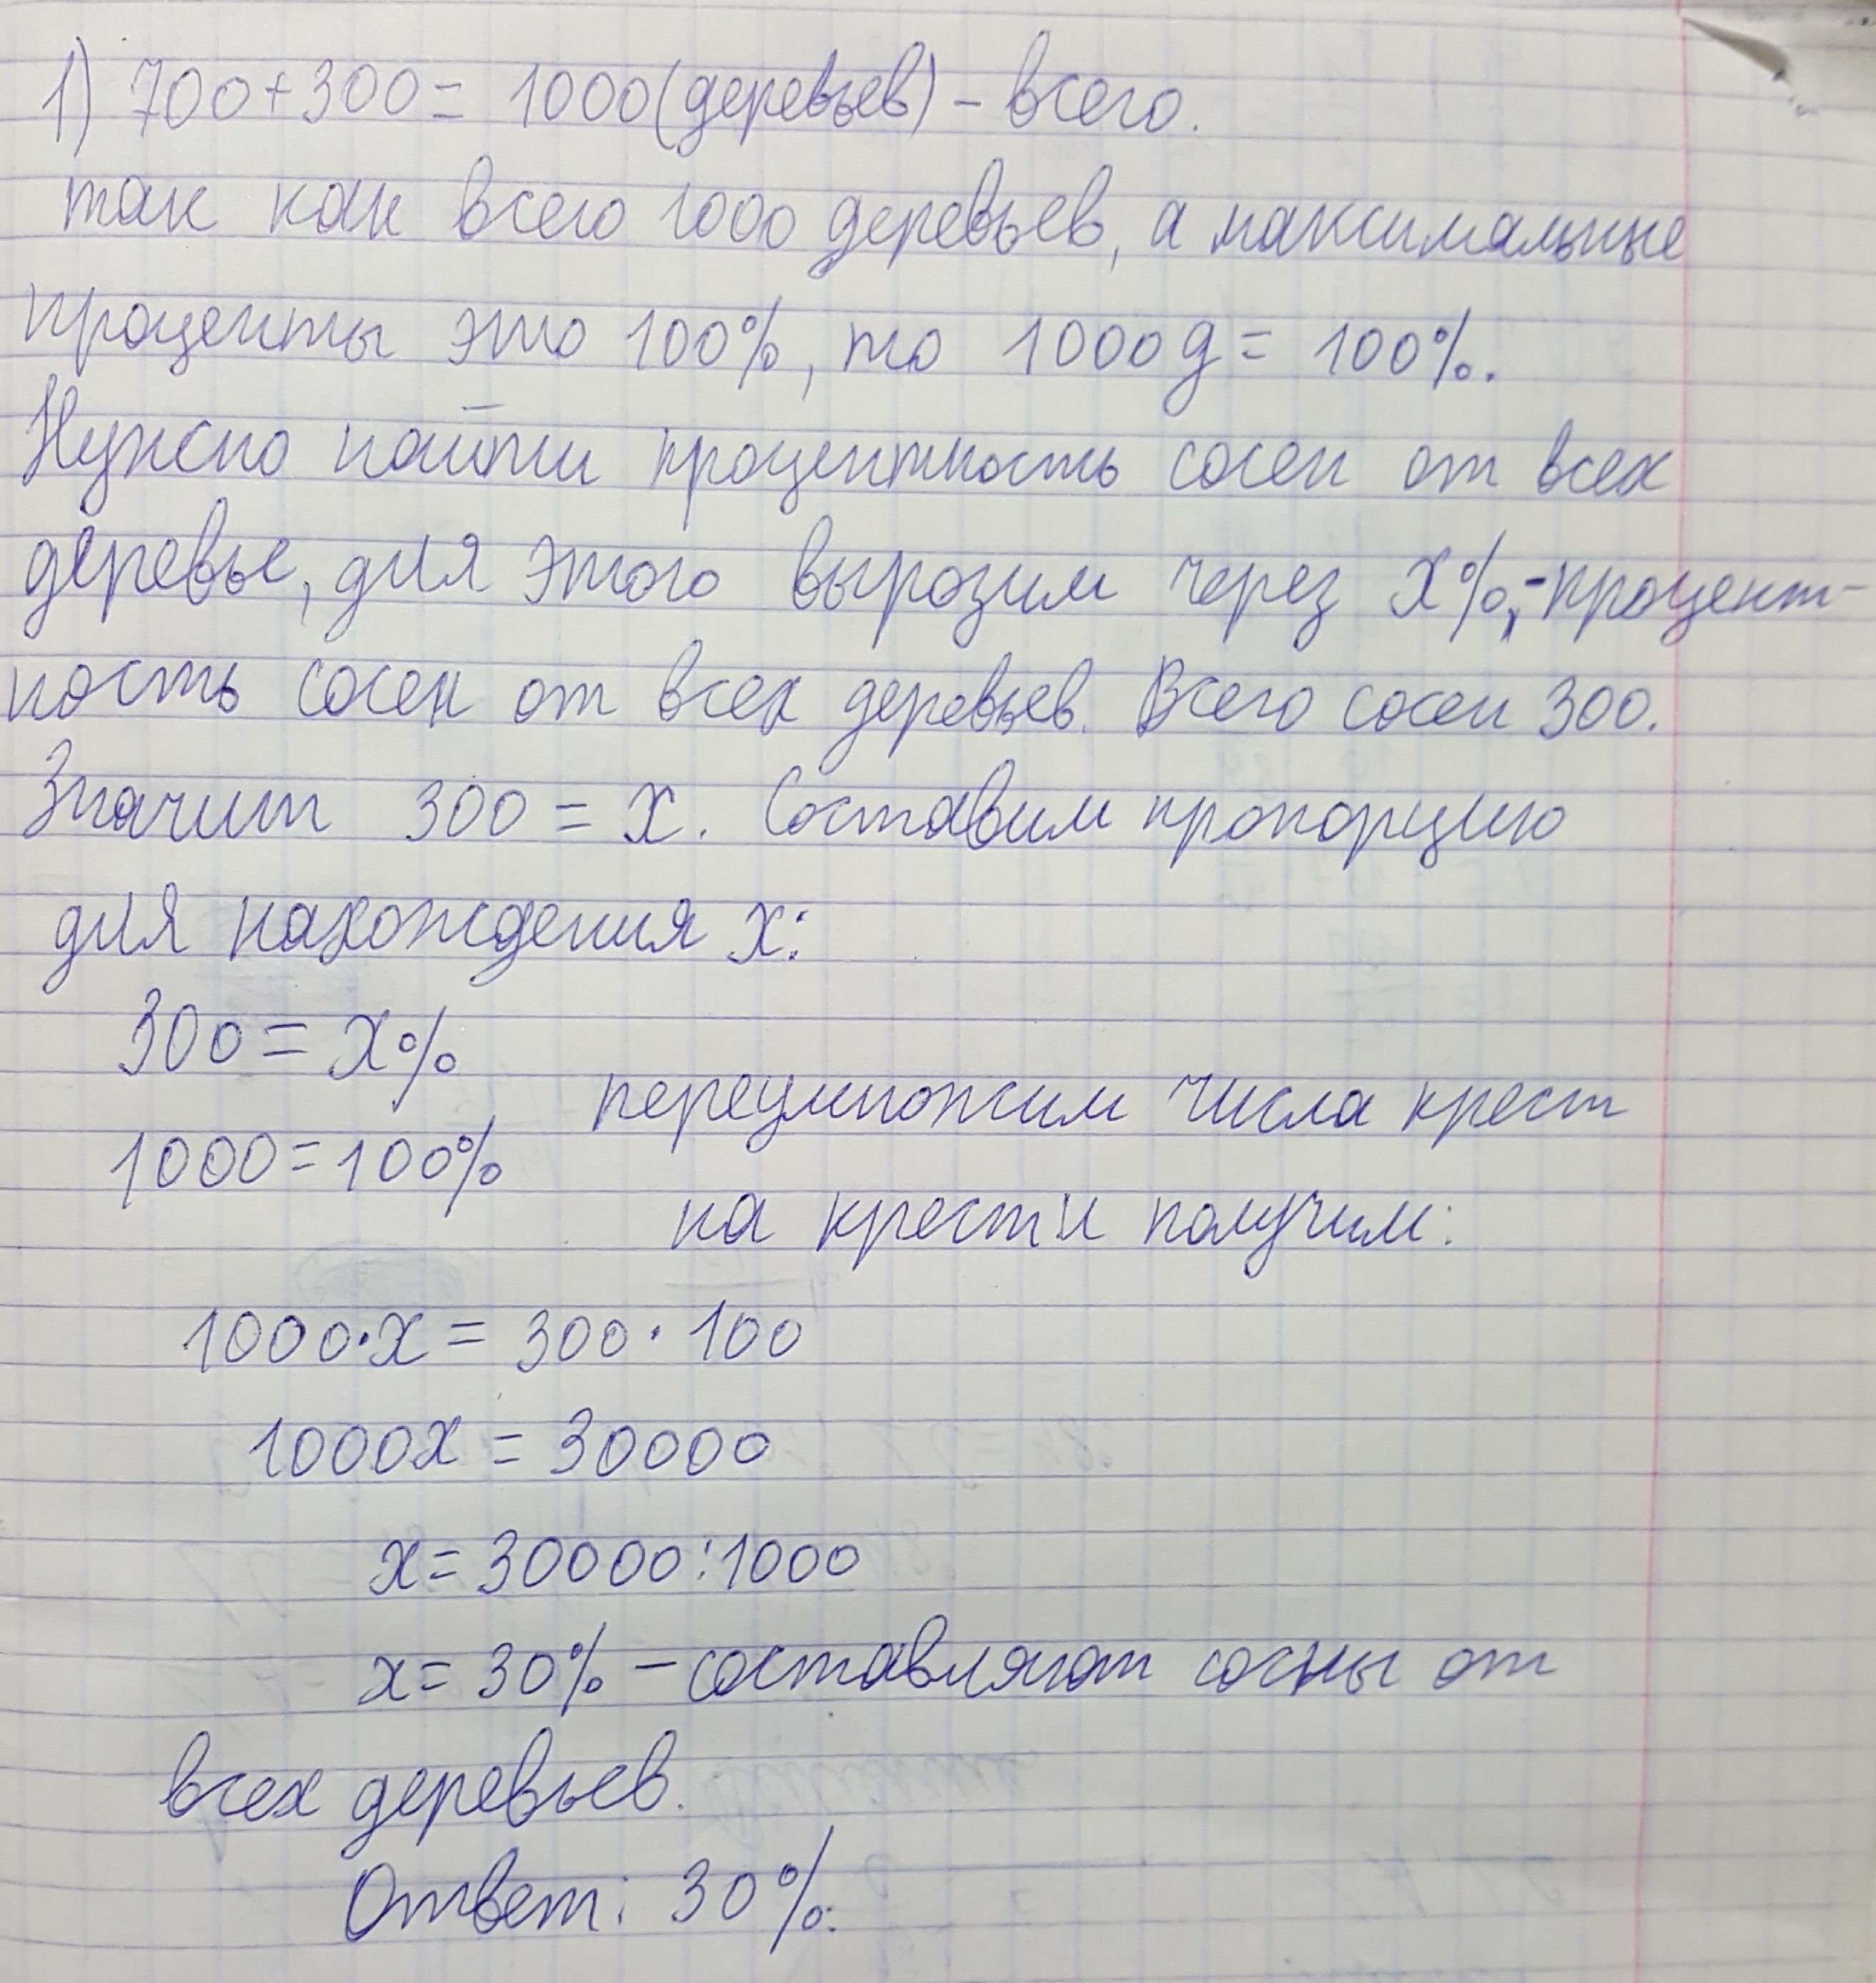 1) 700+300= 1000(деревьев) – всего.
так как всего 1000 деревьев, а максимальные
проценты это 100%, то 1000д = 100%.
Нужно найти процентность сосен от всех
деревье, для этого вырозим через х%,-процент-
ность сосен от всех деревьев. Всего сосен 300.
Значит 300 = х. Составим пропорцию
для нахождения х:
300 = х%
1000=100%
переумножим числа крест
на крест и получим:
1000·х = 300·100
1000х = 30000
х= 30000:1000
х= 30% – составляют сосны от
всех деревьев.
Ответ: 30%.